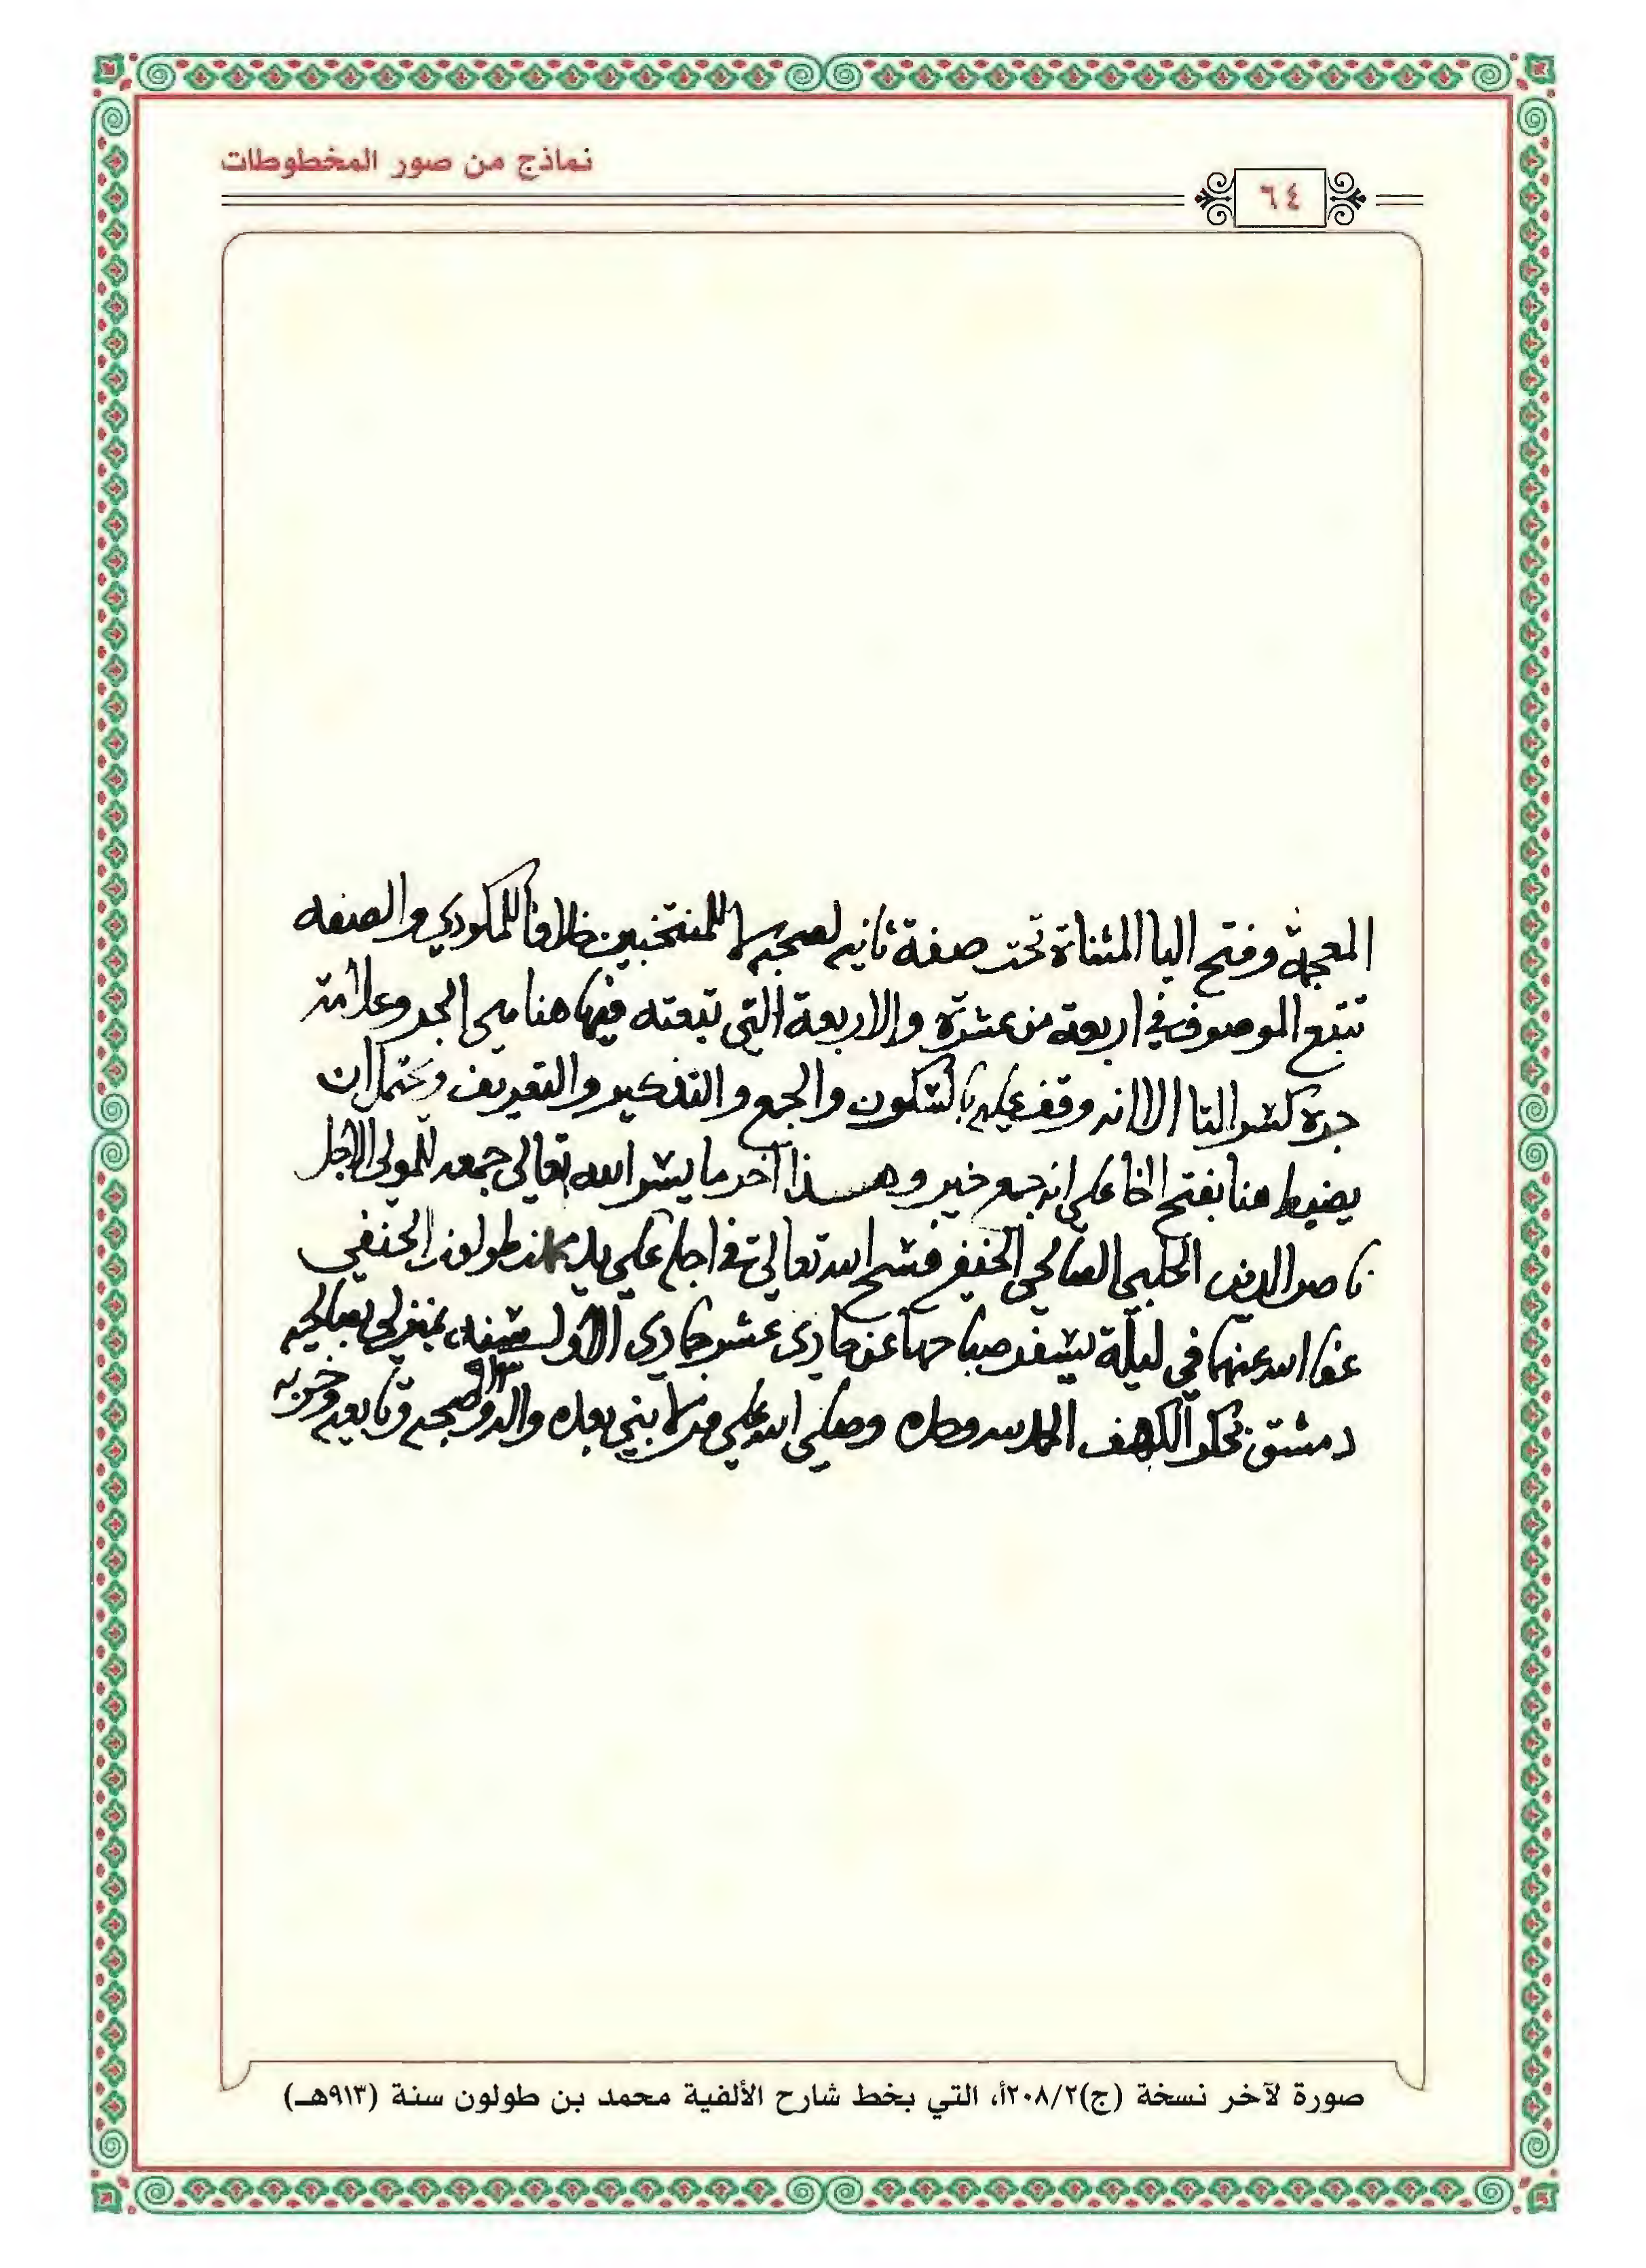 نماذج من صور المخطوطات
٦٤
المعجمة وفتح اليا المثناة تحت صفة ثانيه لصحبه لا للمنتخبين خلافا للمكودي والصفه
تتبع الموصوف في اربعة من عشرة والاربعة التي تبعته فيها هنا هي الجر وعلامة
جره كسر التا الا انه وقف عليه بالسكون والجمع والتذكير والتعريف ويحتمل ان
يضبط هنا بفتح الخا على انه جمع خير وهذا آخر ما يسر الله تعالى جمعه للمولى الاجل
ناصر الدين الحلبي الصالحي الحنفي فسح الله تعالى في اجله على يد محمد بن طولون الحنفي
عفا الله عنهما في ليلة يسفر صباحها عن حادي عشر جمادي الاول سنة ٩١٣ بمنزلي بصالحية
دمشق الكهف الحمد لله وحده وصلى الله على من لا نبي بعده واله وصحبه وتابعيه وحزبه
صورة لآخر نسخة (ج)٢٠٨/٢أ، التي بخط شارح الألفية محمد بن طولون سنة (٩١٣هـ)